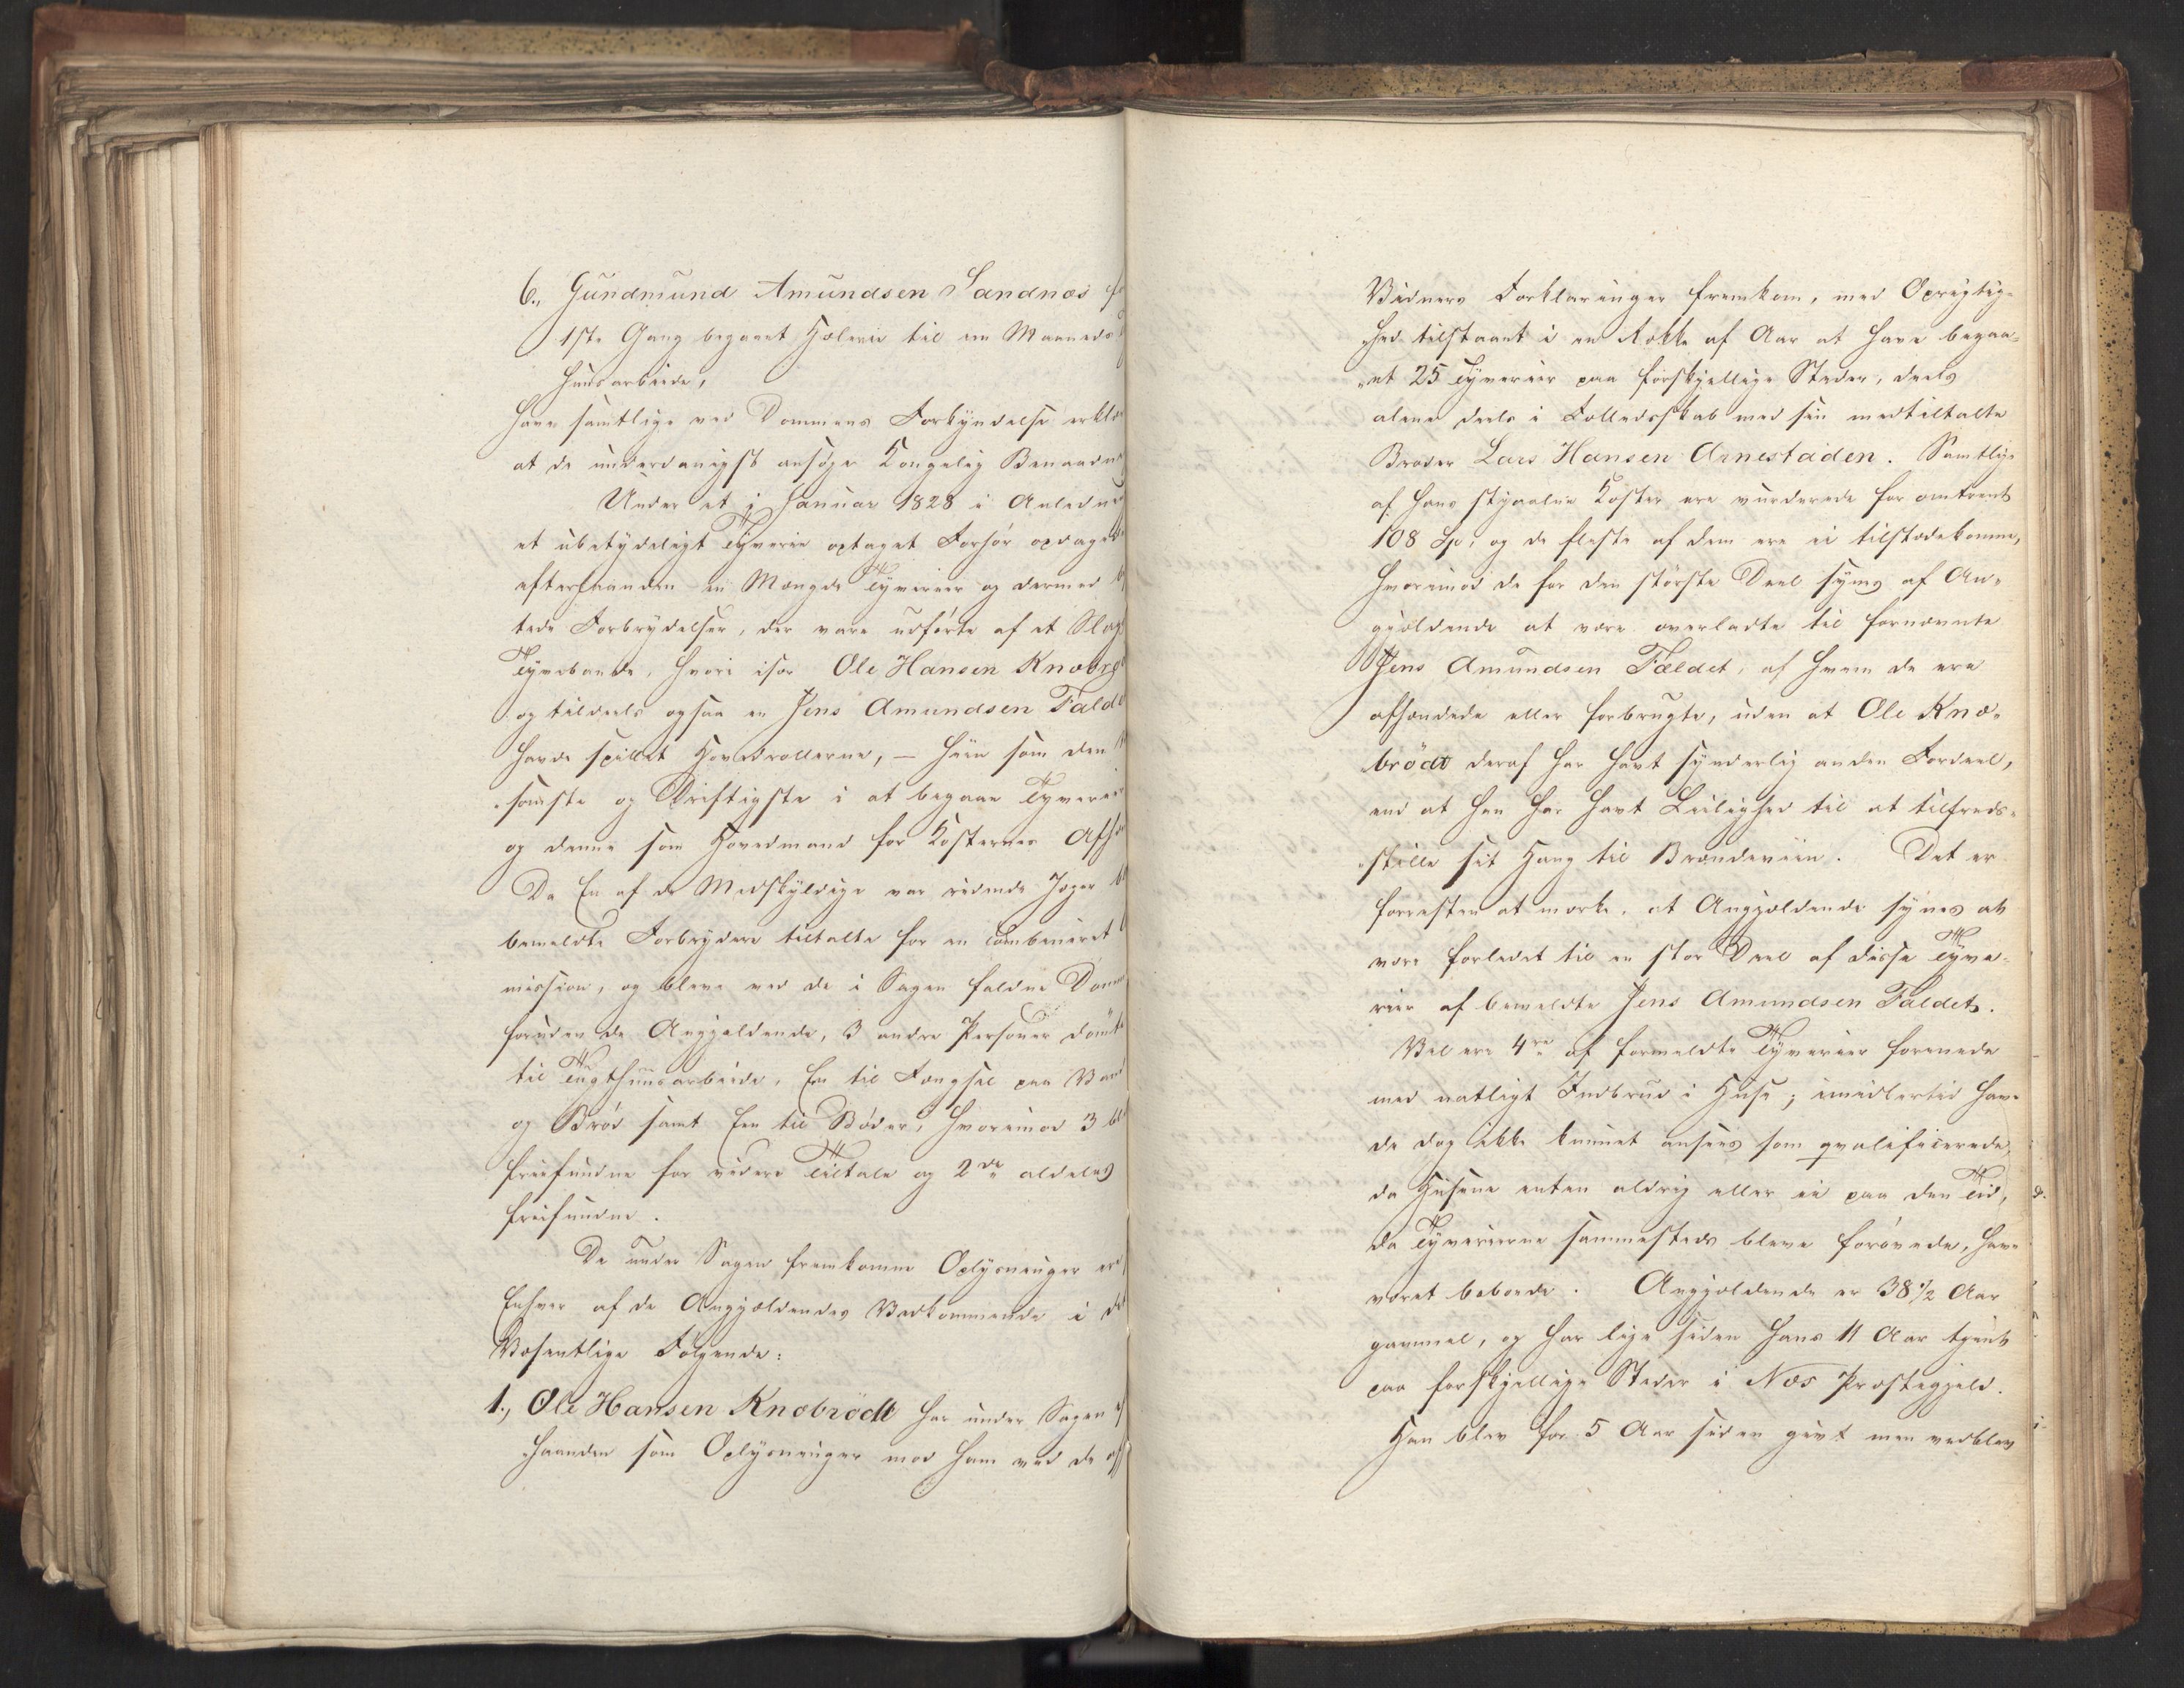 6., Gundmund Amundsen Sandnæs
1ste Gang begaaet Hæleri til en Maaneds
Huusarbeide,
have samtlige ved Dommens Forkyndelse erklæ
at de underdanigst ansøge Kongelig Benaadn
Under et i Januar 1828 i Anledn
et ubetydeligt Tyverie optaget Forhør opdaged
efterhaanden en Mængde Tyverier og dermed
tede Forbrydelser, der vare udførte af et Slags
Tyvebande, hvori især Ole Hansen Knæbrø
og tildeels ogsaa en Jens Amundsen Falde
havde spillet Hovedrollerne, – hiin som den
somste og Driftigste i at begaae Tyverie
og denne som Hovedmand for Kosternes Afhæ
Da En af de Medskyldige var ridende Jæger
bemeldte Forbrydere tiltalte for en combineret
mission, og bleve ved de i Sagen faldne Domme
foruden de Angjældende, 3 andre Personer dømte
til Tugthuusarbeide, En til Fængsel paa Vand
og Brød samt Een til Bøder, hvorimod 3 bl
friefundne for videre Tiltale og 2de aldeles
frifundne.
De under Sagen fremkomne Oplysninger ere
Enhver af de Angjældendes Vedkommende i det
Væsentlige Følgende:
1., Ole Hansen Knæbrödt har under Sagen
haanden som Oplysninger mod ham ved de
Vidners Forklaringer fremkom, med Oprigtig-
hed tilstaaet i en Række af Aar at have begaa-
et 25 Tyverier paa forskjellige Steder, deels
alene deels i Fælledsskab med sin medtiltalte
Broder Lars Hansen Arnestaden. Samtlige
af hans stjaalne Koster ere vurderede for omtrent
108 Sp, og de fleste af dem ere ei tilstædekomne,
hvorimod de for den største Deel synes af An-
gjældende at være overladte til fornævnte
Jens Amundsen Fældet, af hvem de ere
afhændede eller forbrugte, uden at Ole Knæ-
brödt deraf har havt synderlig anden Fordeel,
end at han har havt Leilighed til at tilfreds-
stille sit Hang til Brændeviin. Det er
forresten at mærke, at Angjældende synes at
være forledet til en stor Deel af disse Tyve-
rier af bemeldte Jens Amundsen Faldet.
Vel ere 4re af formeldte Tyverier forenede
med natligt Indbrud i Huse; imidlertid have
de dog ikke kunnet ansees som qvalificerede,
da Husene enten aldrig eller ei paa den Tid,
da Tyverierne sammesteds bleve forøvede, have
været beboede. Angjældende er 38 1/2 Aar
gammel, og har lige siden hans 11 Aar tjent
paa forskjellige Steder i Næs Præstegjeld.
Han blev for 5 Aar siden givt men vedblev